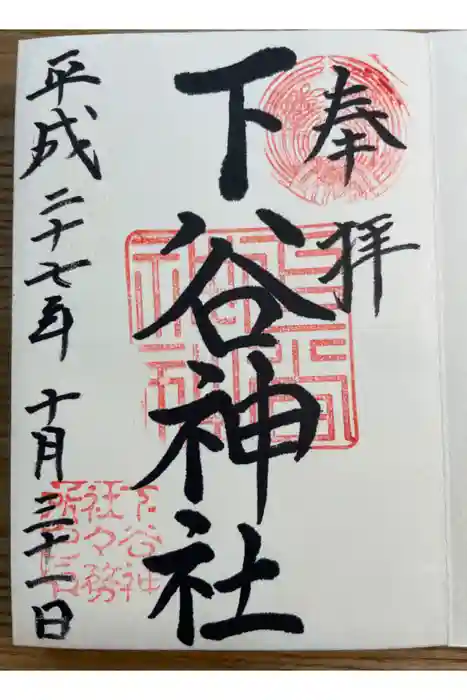 奉拝
下谷神社
平成二十七年十月三十一日
下谷神
社々務
所之印